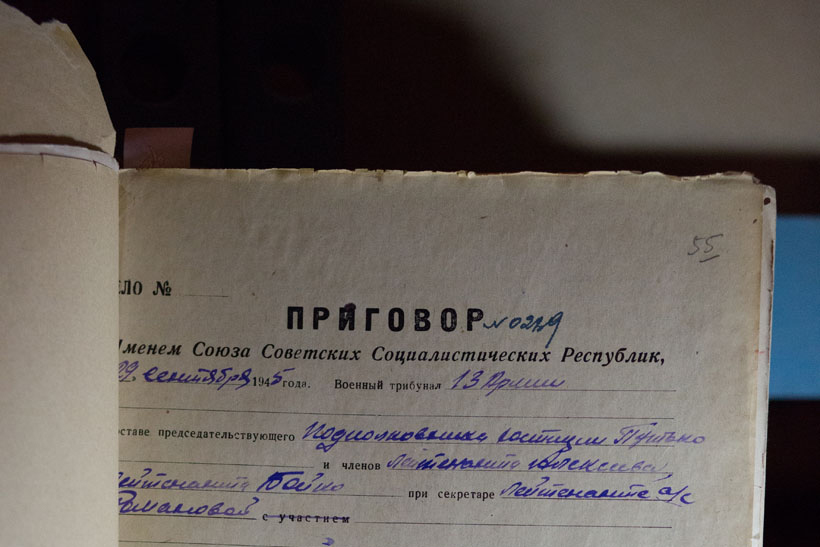 55
ЕЛО №
ПРИГОВОР № 0279
Именем Союза Советских Социалистических Республик,
29 сентября 1945 года. Военный трибунал 13 Армии
оставе председательствующего Подполковника юстиции Путько
и членов Лейтенанта Алексеева,
Лейтенанта Бойко при секретаре Лейтенанте а/с
Романовой с участием